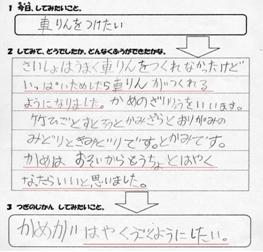 1 今日、してみたいこと。
車りんをつけたい
2 してみて、どうでしたか。どんなくふうができたかな。
さいしょはうまく車りんをつくれなかったけど
いっぱいためしたら車りんがつくれる
ようになりました。かめのざいりょうをいいます。
竹ひごとすとろうとかみざらとおりがみの
みどりときみどりです。とかみです。
かめは おそいからもうちょとはやく
なたらいいと思いました。
3 つぎのじかん してみたいこと。
かめが はやく うごくようにしたい。